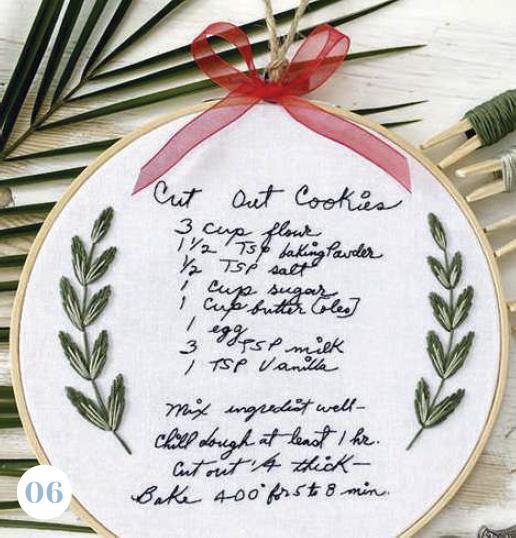 Cut Out Cookies
3 cup flour
1 1/2 TSP baking Powder
1/2 TSP salt
1 cup sugar
1 cup butter [oleo]
1 egg
3 TSP milk
1 TSP Vanilla
Mix ingredist well-
Chill dough at least 1 hr.
Cut out 1/4 thick-
Bake 400° for 5 to 8 min.
06